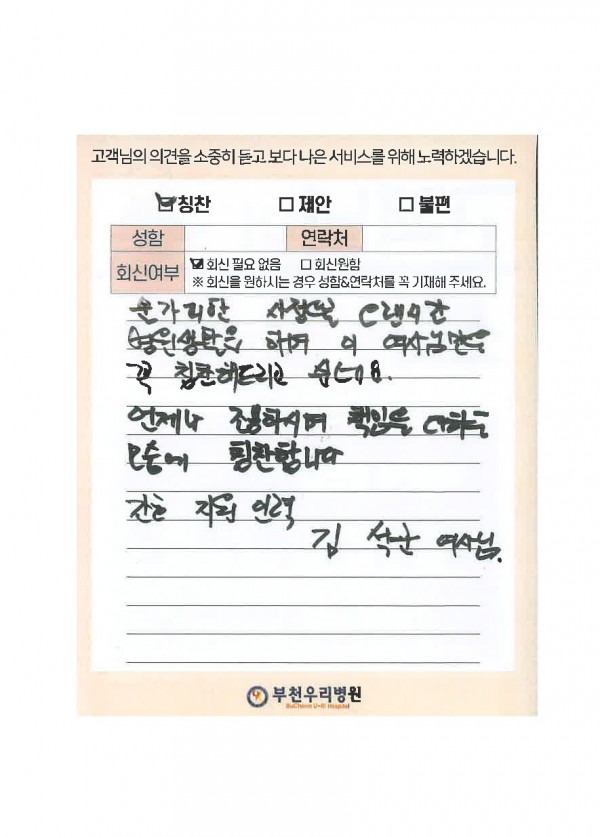 고객님의 의견을 소중히 듣고 보다 나은 서비스를 위해 노력하겠습니다.
칭찬 제안 불편
성함 연락처
회신여부 회신 필요 없음 회신원함
※ 회신을 원하시는 경우 성함&연락처를 꼭 기재해 주세요.
불가피한 사정으로 오랜시간
병원생활을 하며 이 여사님만은
꼭 칭찬해드리고 싶네요.
언제나 조용하시며 책임을 다하는
모습에 칭찬합니다
간호 지원 인력
김 석순 여사님.
부천우리병원
BuCheon U-Ri Hospital